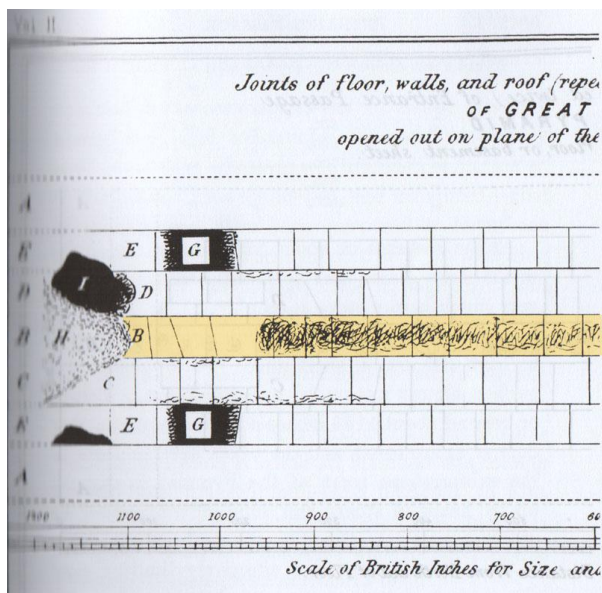 Vol II
Joints of floor, walls, and roof (repe
OF GREAT
opened out on plane of the
A
E E G
I
D D
B H B
C C
E E G
A
1200 1100 1000 900 800 700 60
Scale of British Inches for Size and